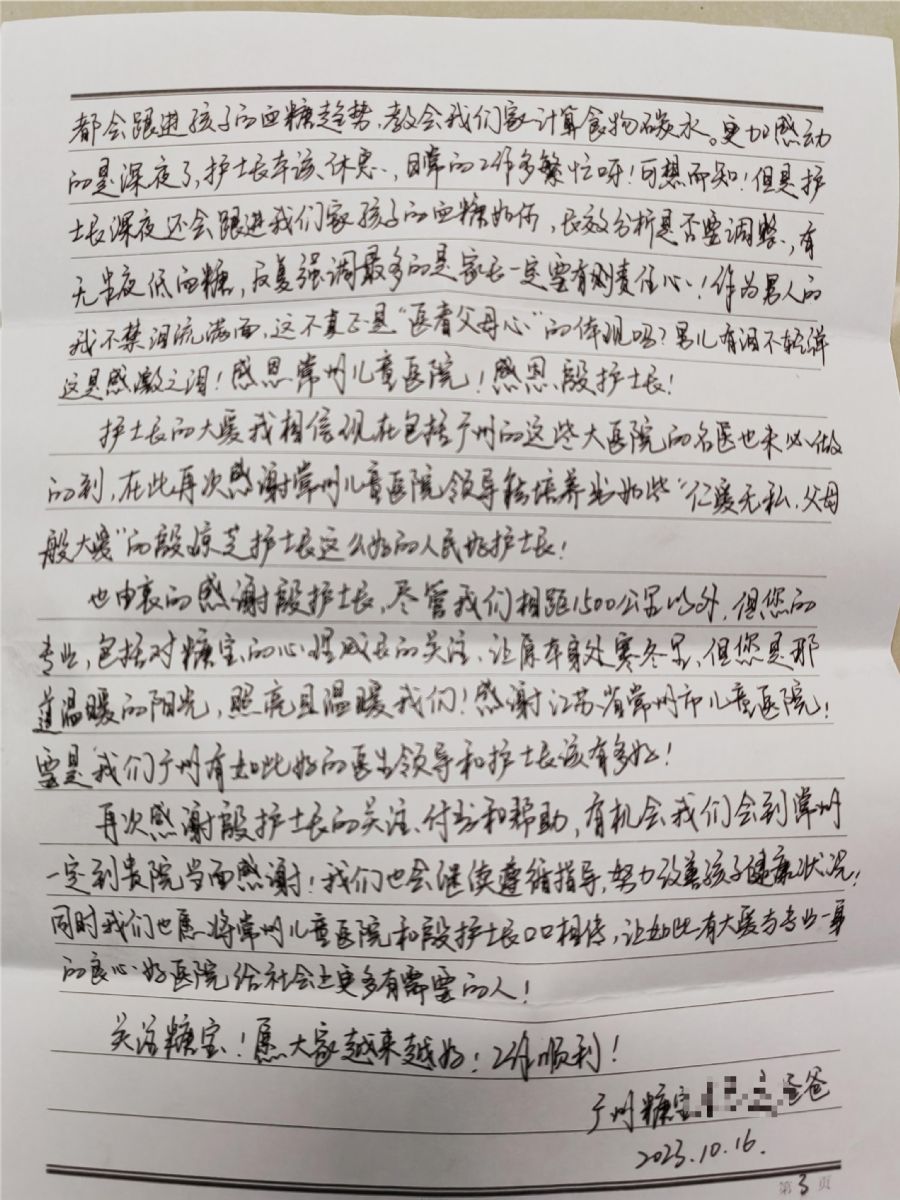 都会跟进孩子的血糖趋势、教会我们家计算食物碳水。更加感动
的是深夜了,护士长本该休息,日常的工作多繁忙呀!可想而知!但是护
士长深夜还会跟进我们家孩子的血糖如何,长效分析是否要调整、有
无半夜低血糖,反复强调最多的是家长一定要有责任心!作为男人的
我不禁泪流满面,这不真正是“医者父母心”的体现吗?男儿有泪不轻弹
这是感激之泪!感恩常州儿童医院!感恩段护士长!
护士长的大爱我相信现在包括广州的这些大医院的名医也未必做
的到,在此再次感谢常州儿童医院领导能培养出如些“仁爱无私、父母
般大爱”的段凉芝护士长这么好的人民好护士长!
也由衷的感谢段护士长,尽管我们相距1500公里以外,但您的
专业,包括对糖宝的心理成长的关注、让原本身处寒冬里,但您是那
道温暖的阳光,照亮且温暖我们!感谢江苏省常州市儿童医院!
要是我们广州有如此好的医生领导和护士长该有多好!
再次感谢段护士长的关注、付出和帮助,有机会我们会到常州
一定到贵院当面感谢!我们也会继续遵循指导,努力改善孩子健康状况!
同时我们也愿将常州儿童医院和段护士长口口相传,让如此有大爱与专业一身
的良心好医院给社会上更多有需要的人!
关注糖宝!愿大家越来越好!工作顺利!
广州糖宝 爸爸
2023.10.16.
第3页